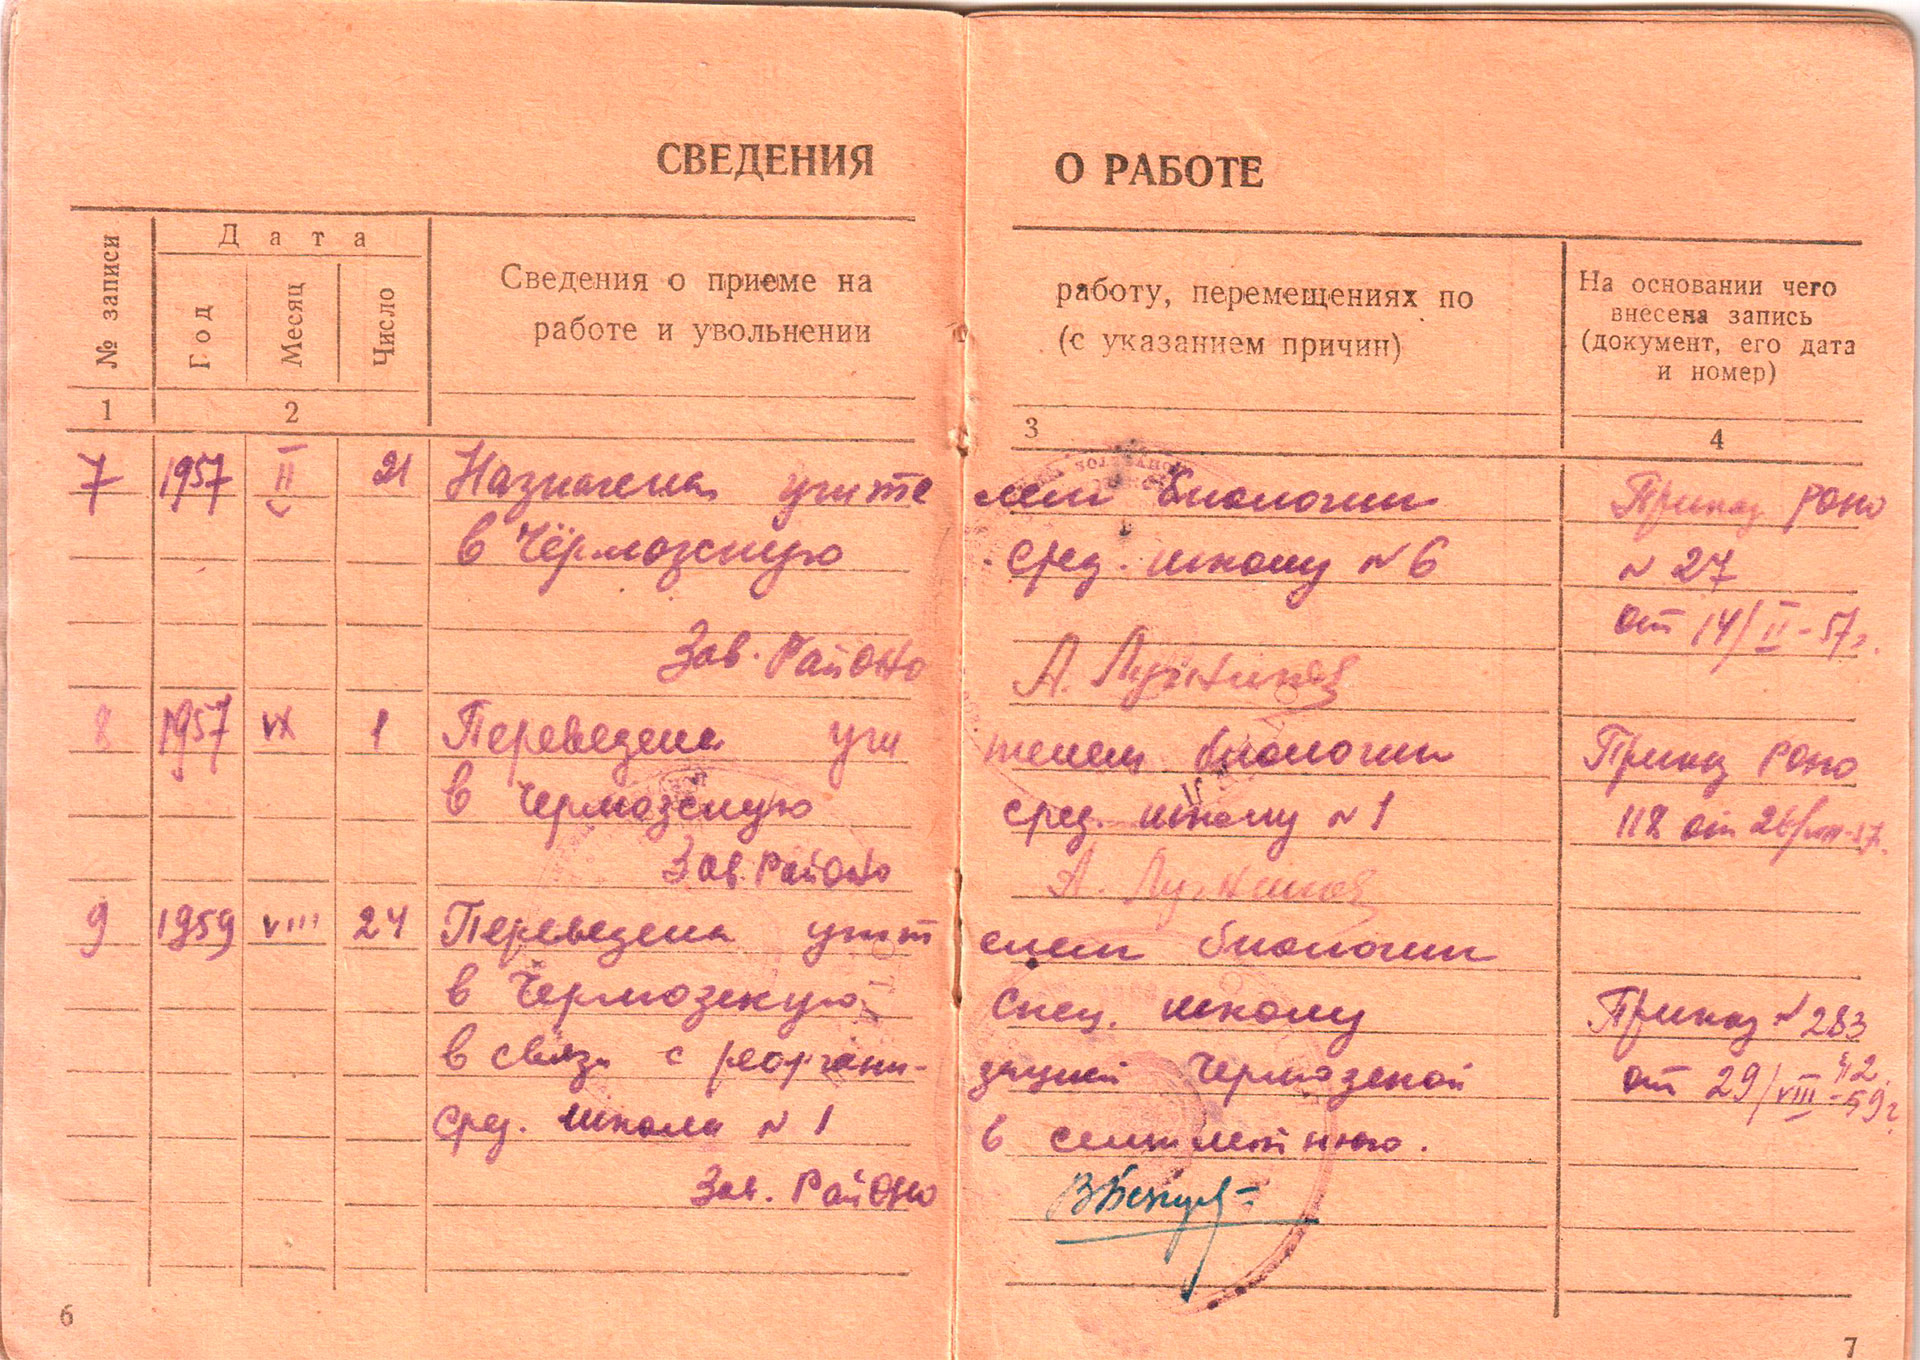 СВЕДЕНИЯ О РАБОТЕ
№ записи
Дата
Год
Месяц
Число
Сведения о приеме на работу, перемещениях по
работе и увольнении (с указанием причин)
На основании чего
внесена запись
(документ, его дата
и номер)
1 2 3 4
7 1957 II 21 Назначена учителем биологии Приказ РОНО
в Чёрмозскую сред. школу №6 № 27
от 14/II-57г.
Зав. РайОНО А. Лужкинов
8 1957 IX 1 Переведена учителем биологии Приказ РОНО
в Чермозскую сред. школу №1 118 от 26/VIII-57.
Зав. РайОНО А. Лужкинов
9 1959 VIII 24 Переведена учителем биологии
в Чермозскую спец. школу Приказ №283
в связи с реорганизацией Чермозской от 29/VIII-59г.
сред. школа №1 в семилетнюю.
Зав. РайОНО
6
7